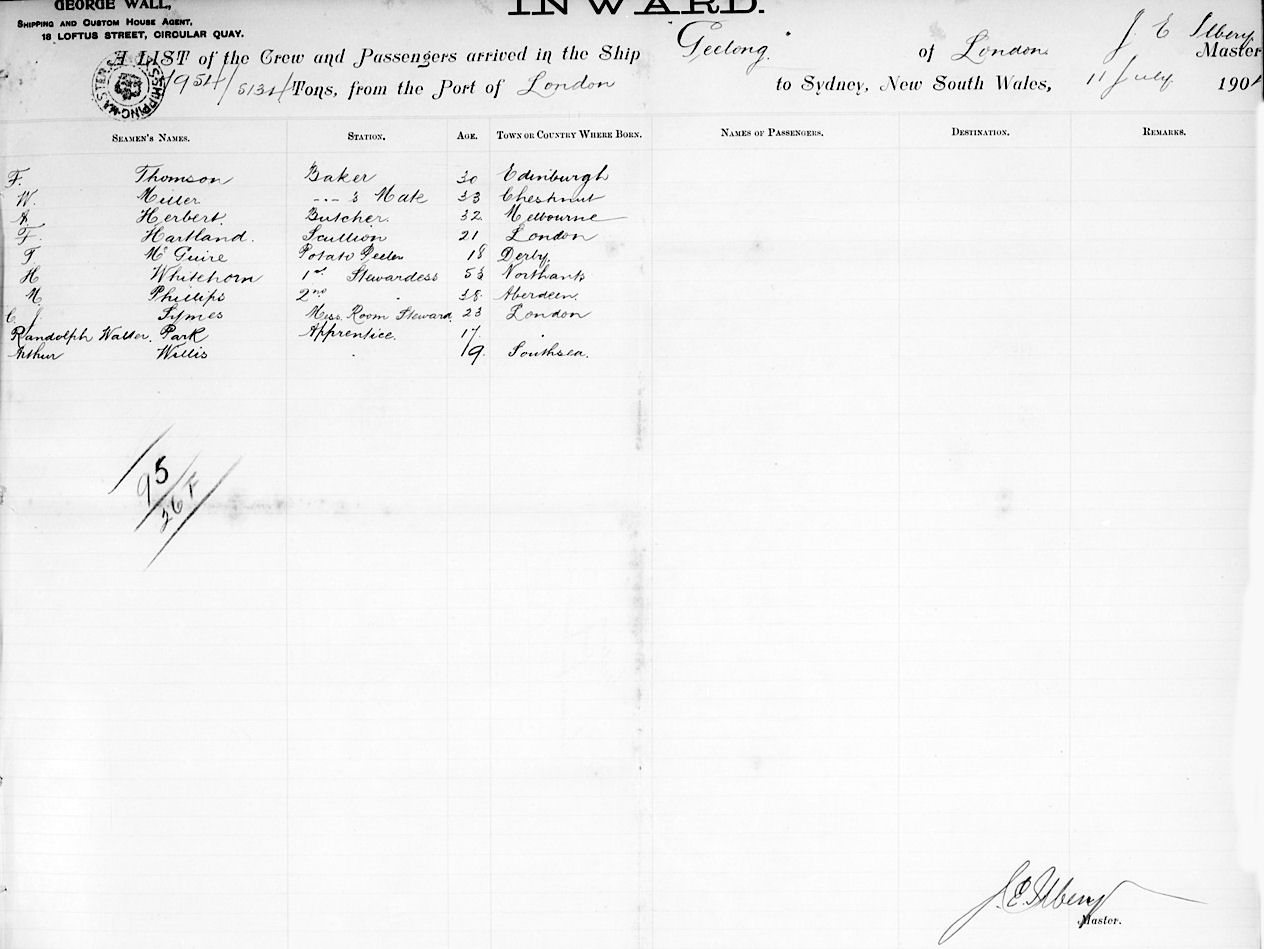 GEORGE WALL,
SHIPPING AND CUSTOM HOUSE AGENT,
18 LOFTUS STREET, CIRCULAR QUAY.
INWARD.
A LIST of the Crew and Passengers arrived in the Ship "Geelong" of London J E Ilbery Master
1954/5134 Tons, from the Port of London to Sydney, New South Wales, 11 July 190
SEAMEN'S NAMES. STATION. AGE. TOWN OR COUNTRY WHERE BORN. NAMES OF PASSENGERS. DESTINATION. REMARKS.
F. Thomson Baker 30 Edinburgh
W. Miller --- s Mate 33 Chestnut
Herbert Butcher. 32 Melbourne
F. Hartland. Scullion 21 London
T McGuire Potato Peeler 18 Derby
H Whitehorn 1st Stewardess 53 Northants
M. Phillips 2nd " 38 Aberdeen.
C J. Symes Mess Room Steward 23 London
Randolph Walter. Park Apprentice. 17 "
Arthur Willis " 19. Southsea.
95
26 F
J. E. Ilbery
Master.